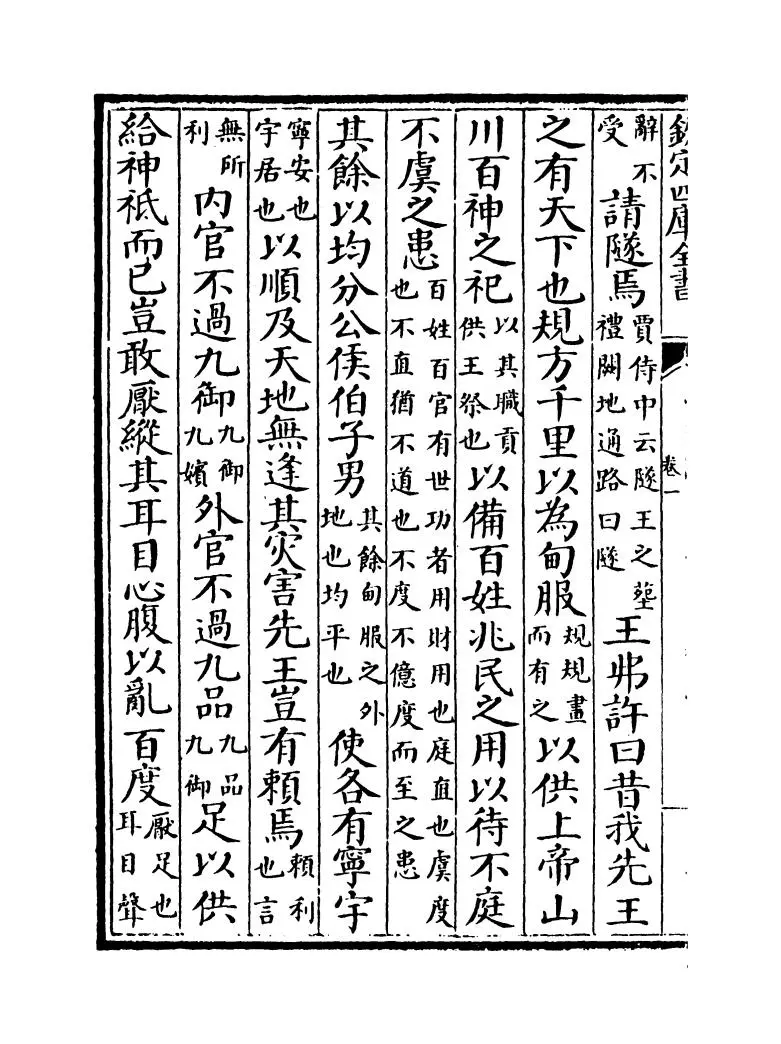 欽定四庫全書 卷一
辭不受請隧焉賈侍中云隧王之塟禮闕地通路曰隧王弗許曰昔我先王
之有天下也規方千里以為甸服規規畫而有之以供上帝山
川百神之祀以其職貢供王祭也以備百姓兆民之用以待不庭
不虞之患百姓百官有世功者用財用也庭直也虞度也不直猶不道也不度不億度而至之患
其餘以均分公侯伯子男其餘甸服之外地也均平也使各有寧宇
寧安也宇居也以順及天地無逢其灾害先王豈有賴焉賴利也言
無所利内官不過九御九御九嬪外官不過九品九品九御足以供
給神祇而已豈敢厭縱其耳目心腹以亂百度厭足也耳目聲